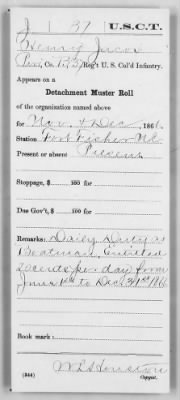 J 1 37 U.S.C.T.
Henry Jacox
Pvt., Co. , 37 Reg't U. S. Col'd Infantry.
Appears on a
Detachment Muster Roll
of the organization named above
for Nov & Dec, 186
Station Fort Fisher N.C.
Present or absent Present
Stoppage, $ 100 for
Due Gov't, $ 100 for
Remarks: Daily Duty as
Boatman, Entitled
20 cents per day from
June 1st to Dec 31st 186
Book mark:
W S Houston
(354) Copyist.